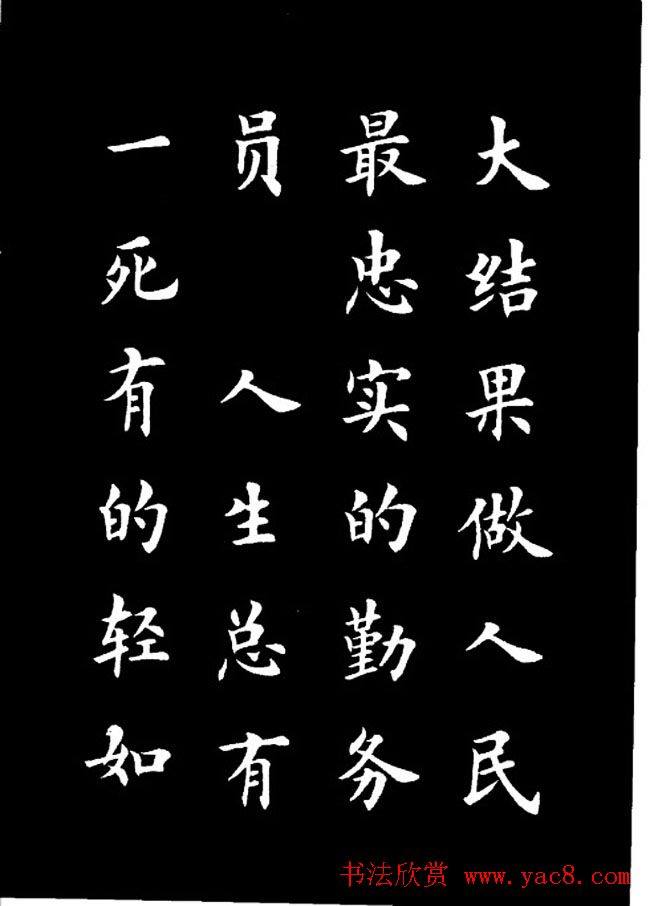 大结果做人民
最忠实的勤务
员 人生总有
一死有的轻如
书法欣赏 www.yac8.com